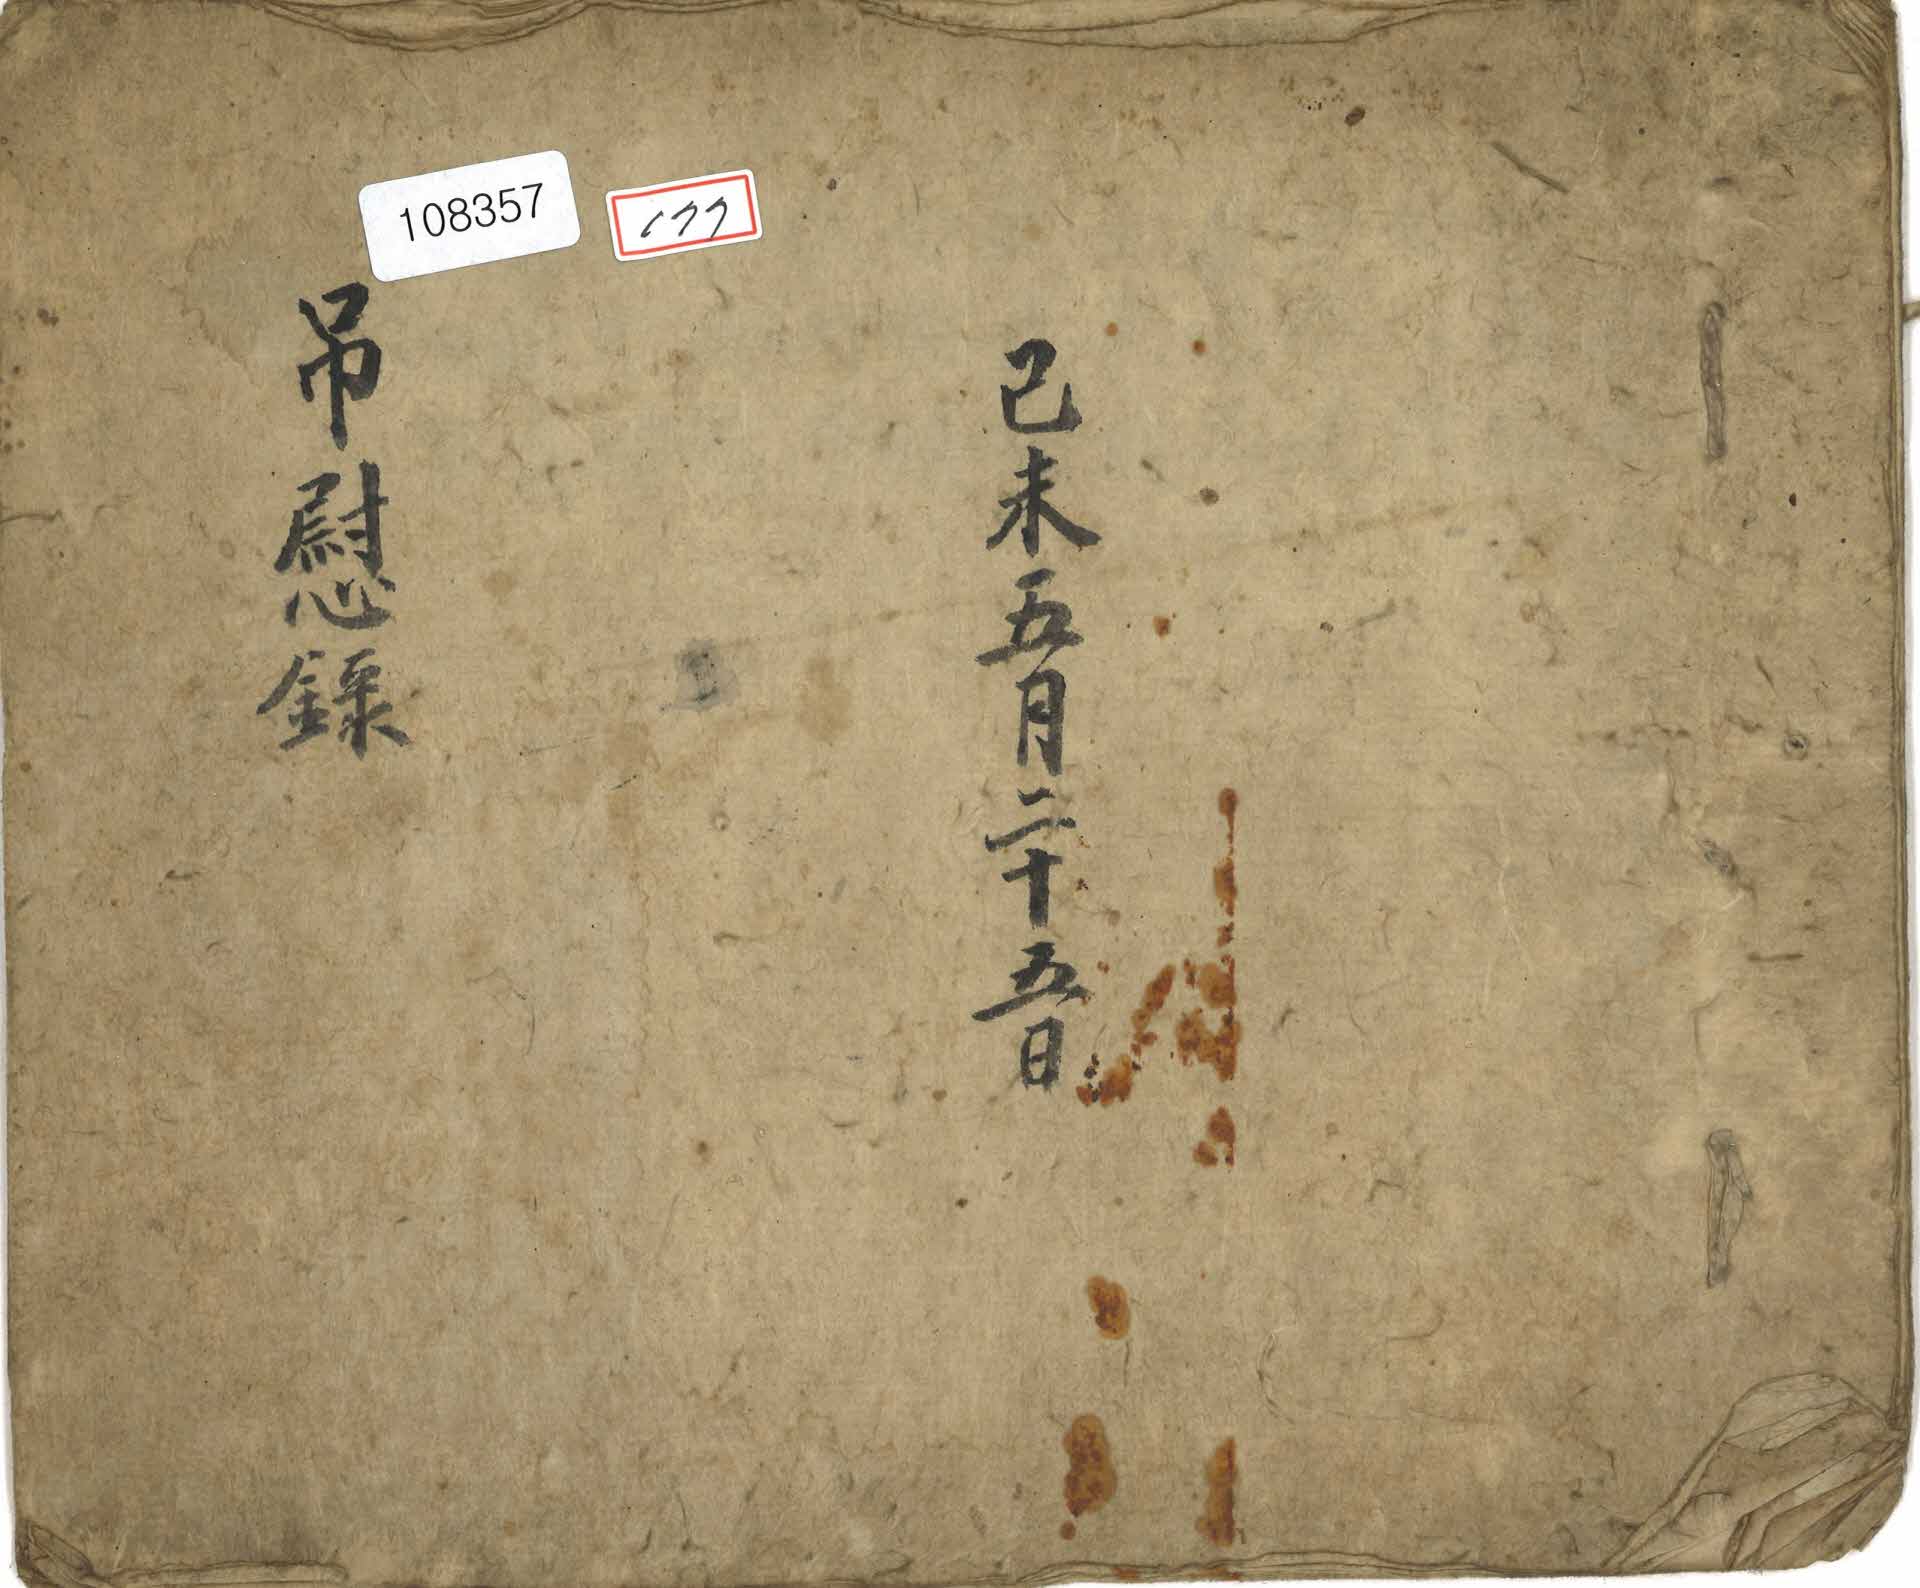 108357
177
己未五月二十五日
吊慰錄